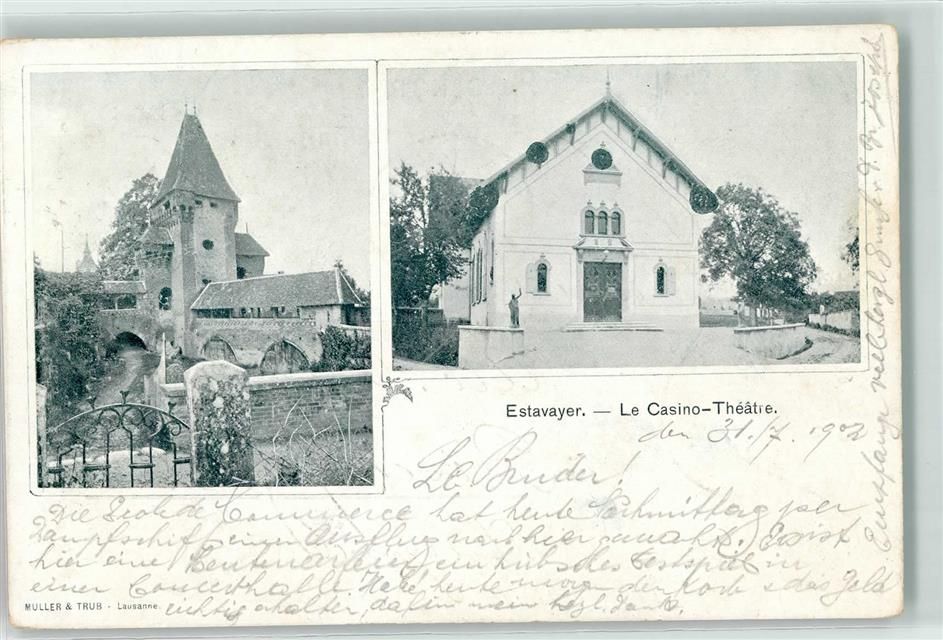 Estavayer. — Le Casino-Théâtre.
den 31./7. 1902
Lb Bruder!
Die École de Commerce hat heute Nachmittag per
Dampfschiff einen Ausflug nach hier gemacht. Es ist
hier eine Centenarfeier ein hübsches Festspiel in
einer Concerthalle. Habe heute morgen den Korb & das Geld
richtig erhalten, dafür mein herzl. Dank.
MULLER & TRUB - Lausanne.
Empfang vielmal Gruss v. d. Br. Joseph